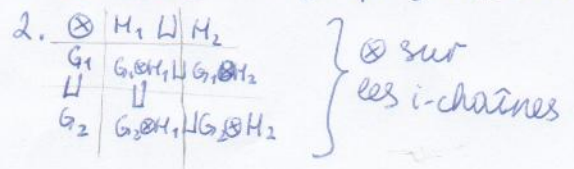 2. ⊗ | H₁ ⊔ | H₂
G₁ | G₁⊗H₁ ⊔ | G₁⊗H₂
⊔ | ⊔
G₂ | G₂⊗H₁ ⊔ G₂⊗H₂
⊗ sur
les i-chaînes